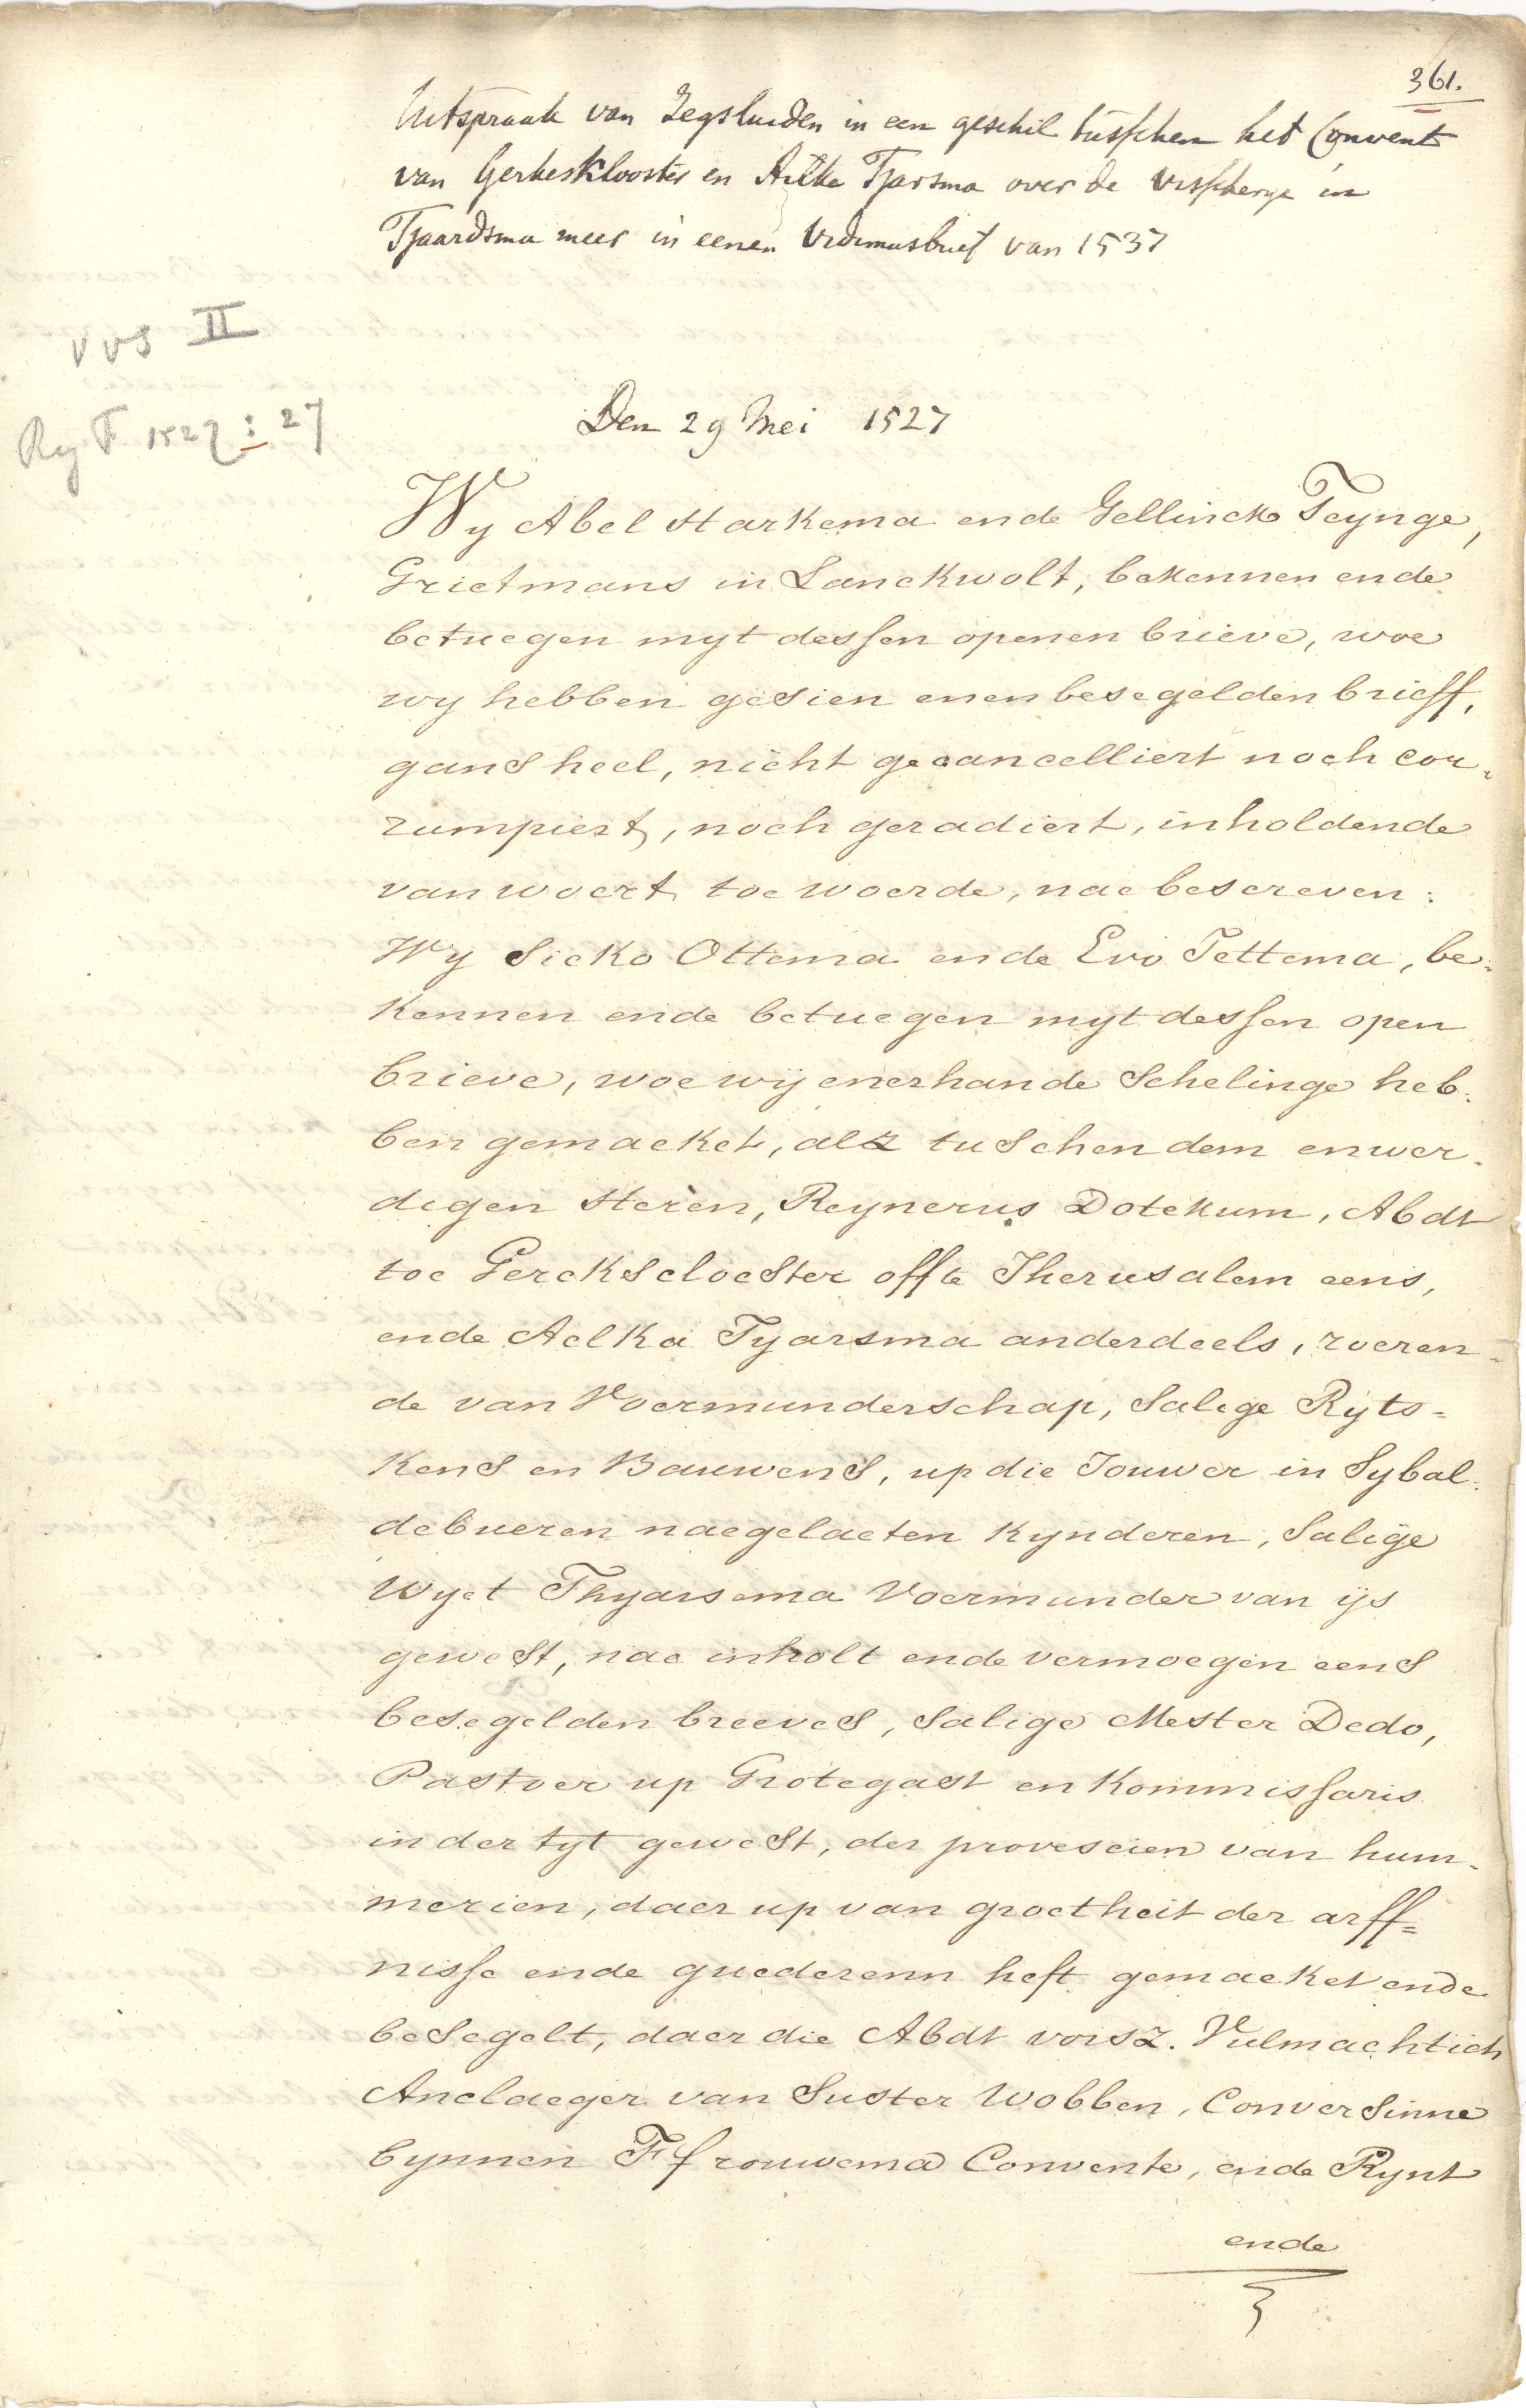 361.
Uitspraak van Zegsluiden in een geschil tusschen het Convent
van Gerkesklooster en Aelka Tjarsma over de visscherye in
Tjaardsma meer in eenen Vidimusbrief van 1537
VVS II
Reg F 1527 : 27
Den 29 Mei 1527
Wy Abel Harkema ende Gellinck Teynge,
Grietmans in Lanckwolt, bekennen ende
betuegen myt dessen openen brieve, woe
wy hebben gesien enen besegelden brieff,
gans heel, nicht gecancelliert noch cor-
rumpiert, noch geradiert, inholdende
van woert toe woerde, nae bescreven:
Wy Sicko Ottema ende Evo Tettema, be-
kennen ende betuegen myt dessen open
brieve, woe wij enerhande Schelinge heb-
ben gemacket, alz tuschen dem enwer-
digen Heren, Reynerus Dotekum, Abdt
toe Gerckscloester offte Iherusalem eens,
ende Aelka Tyarsma anderdeels, roeren-
de van Voermunderschap, Salige Ryts-
kens en Bauwens, up die Jouwer in Sybal-
debueren naegelaeten kynderen, Salige
Wyet Thyarsema Voermunder van ys
gewest, nae inholt ende vermoegen eens
besegelden breeves, Salige Mester Dedo,
Pastoer up Grotegast en Kommissaris
in der tyt gewest, der provescien van hum-
merien, daer up van groetheit der arff-
nisse ende guederenn heft gemacket ende
besegelt, daer die Abdt vorsz. Vulmachtich
Anclaeger van Suster Wobben, Conversinne
bynnen Ffrouwema Convente, ende Rynt
ende